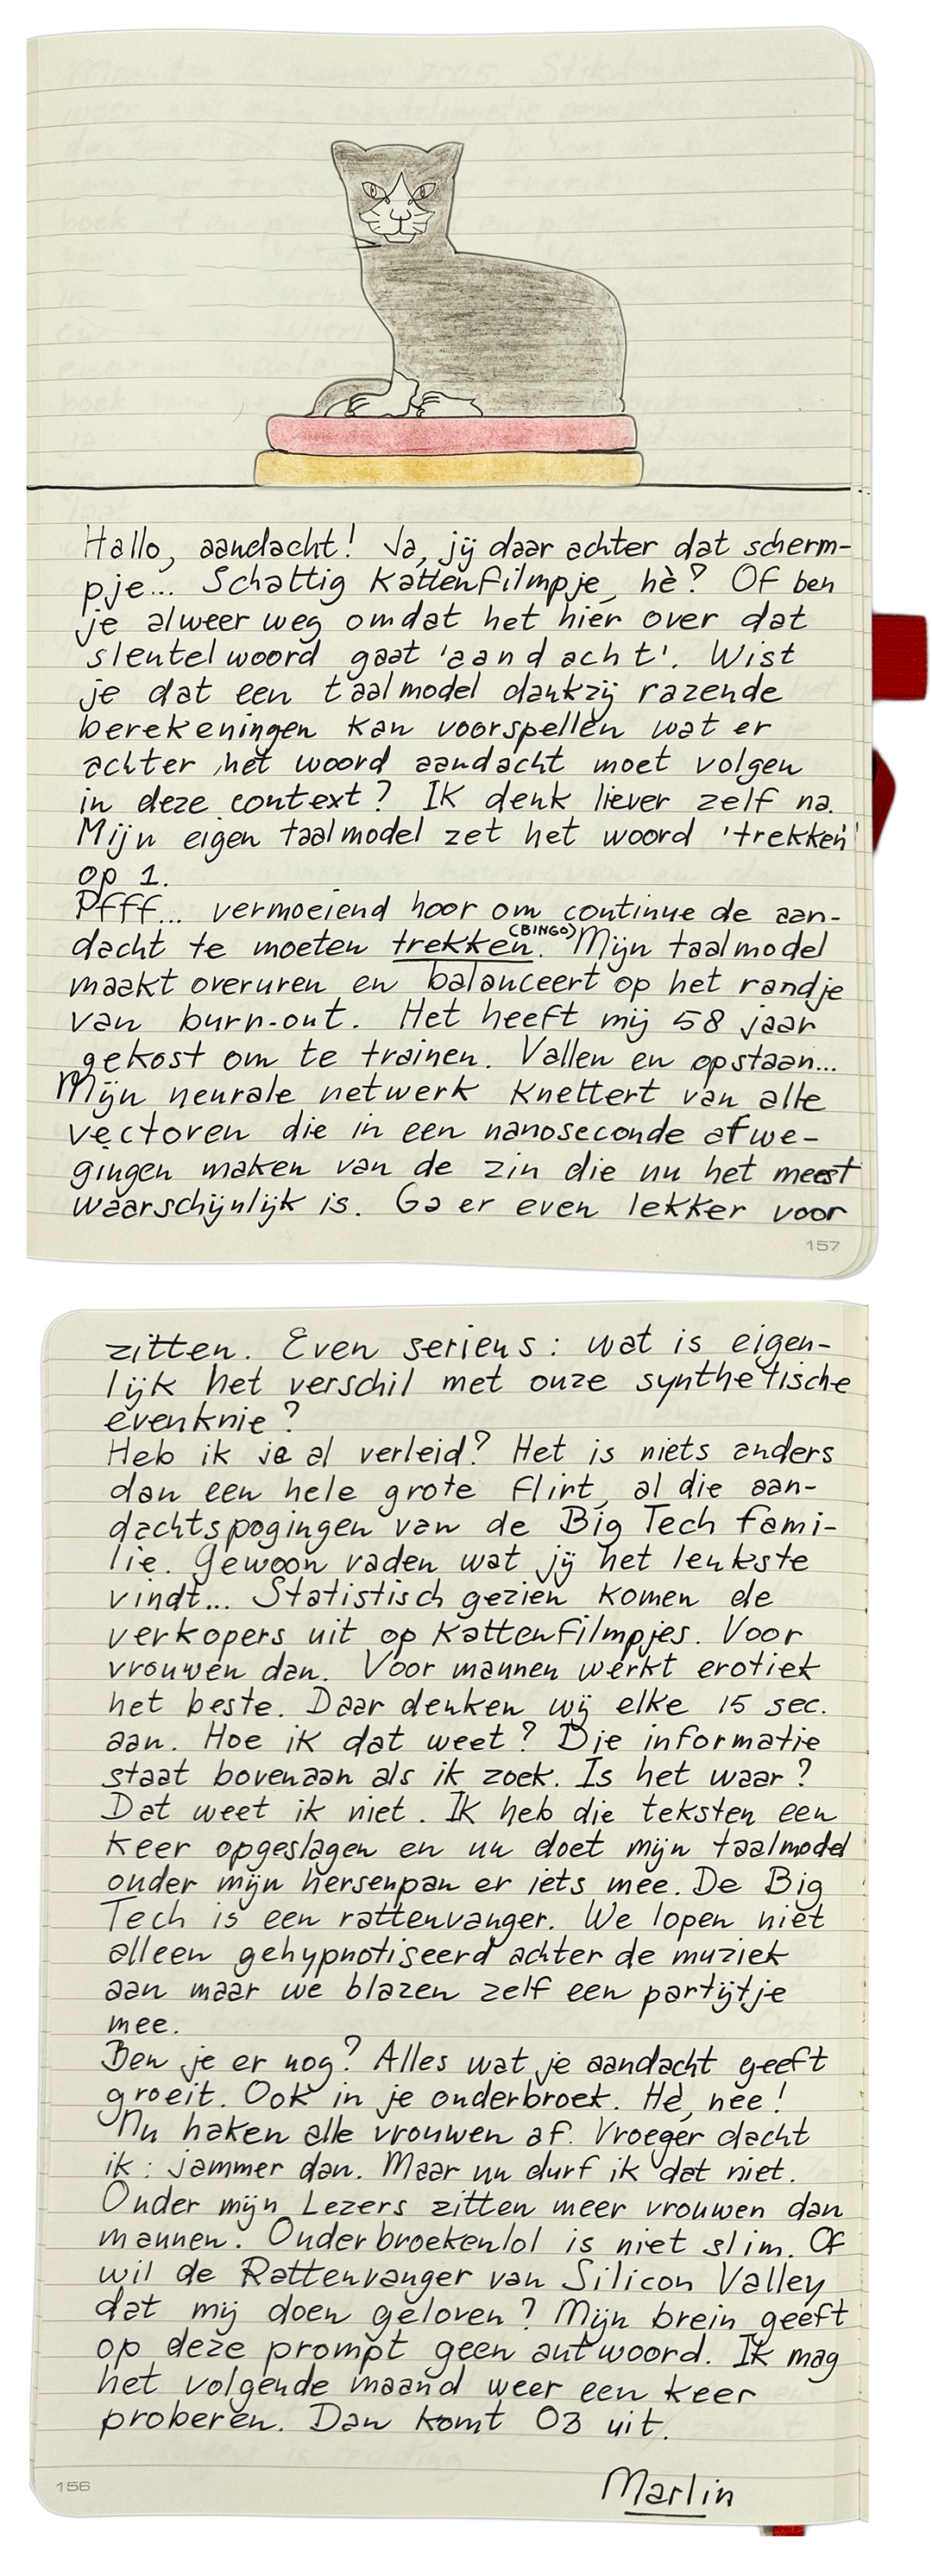 Hallo, aandacht! Ja, jij daar achter dat scherm-
pje... Schattig kattenfilmpje, hè? Of ben
je alweer weg omdat het hier over dat
sleutelwoord gaat 'aandacht'. Wist
je dat een taalmodel dankzij razende
berekeningen kan voorspellen wat er
achter het woord aandacht moet volgen
in deze context? Ik denk liever zelf na.
Mijn eigen taalmodel zet het woord 'trekken'
op 1.
Pfff... vermoeiend hoor om continue de aan-
(BINGO)
dacht te moeten trekken. Mijn taalmodel
maakt overuren en balanceert op het randje
van burn-out. Het heeft mij 58 jaar
gekost om te trainen. Vallen en opstaan...
Mijn neurale netwerk knettert van alle
vectoren die in een nanoseconde afwe-
gingen maken van de zin die nu het meest
waarschijnlijk is. Ga er even lekker voor
157
zitten. Even serieus: wat is eigen-
lijk het verschil met onze synthetische
evenknie?
Heb ik je al verleid? Het is niets anders
dan een hele grote flirt, al die aan-
dachtspogingen van de Big Tech fami-
lie. Gewoon raden wat jij het leukste
vindt... Statistisch gezien komen de
verkopers uit op kattenfilmpjes. Voor
vrouwen dan. Voor mannen werkt erotiek
het beste. Daar denken wij elke 15 sec.
aan. Hoe ik dat weet? Die informatie
staat bovenaan als ik zoek. Is het waar?
Dat weet ik niet. Ik heb die teksten een
keer opgeslagen en nu doet mijn taalmodel
onder mijn hersenpan er iets mee. De Big
Tech is een rattenvanger. We lopen niet
alleen gehypnotiseerd achter de muziek
aan maar we blazen zelf een partijtje
mee.
Ben je er nog? Alles wat je aandacht geeft
groeit. Ook in je onderbroek. Hè, nee!
Nu haken alle vrouwen af. Vroeger dacht
ik: jammer dan. Maar nu durf ik dat niet.
Onder mijn Lezers zitten meer vrouwen dan
mannen. Onderbroekenlol is niet slim. Of
wil de Rattenvanger van Silicon Valley
dat mij doen geloven? Mijn brein geeft
op deze prompt geen antwoord. Ik mag
het volgende maand weer een keer
proberen. Dan komt O3 uit.
Marlin
156